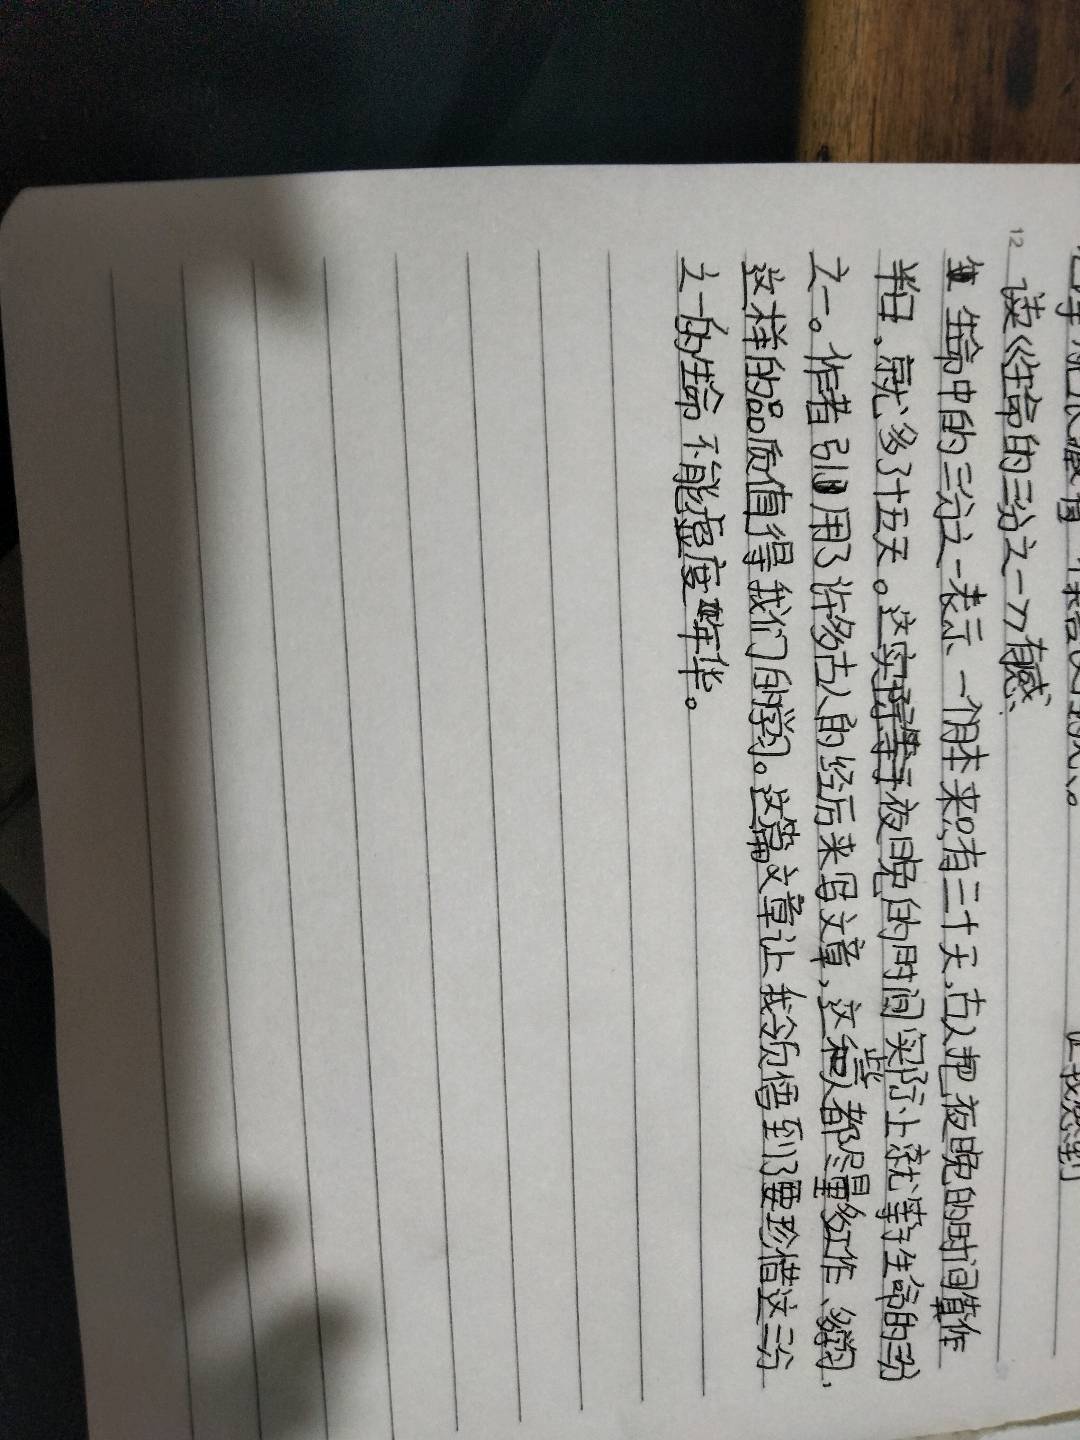 12
读《生命的三分之一》有感
生命中的三分之一表示一个月本来只有三十天,古人把夜晚的时间算作
半日、就多了十五天。这夜晚的时间实际上就等于生命的三分
之一。作者引用了许多古人的经历来写文章,这些人都尽量多工作、多学习,
这样的品质值得我们的学习。这篇文章让我领悟到了要珍惜这三分
之一的生命不能虚度年华。
让我感到